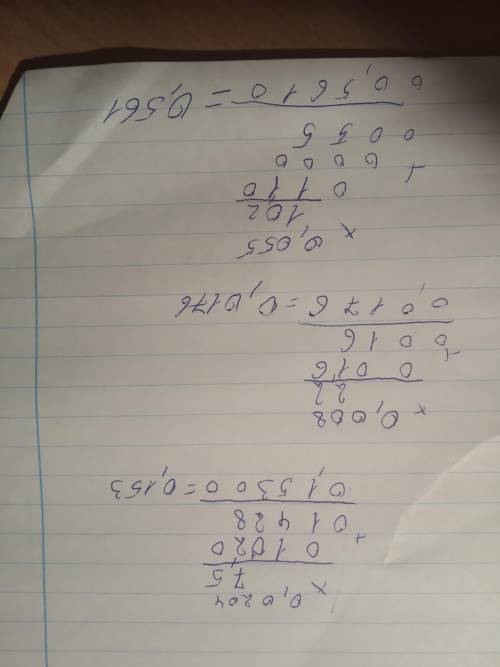 × 0,0204
7,5
0 1 0 2 0
+
0 1 4 2 8
0,1 5 3 0 0 = 0,153
× 0,008
2,2
0 0 1 6
+
0 0 1 6
0,0 1 7 6 = 0,0176
× 0,055
10,2
0 1 1 0
+ 0 0 0 0
0 0 5 5
0 0,5 6 1 0 = 0,561